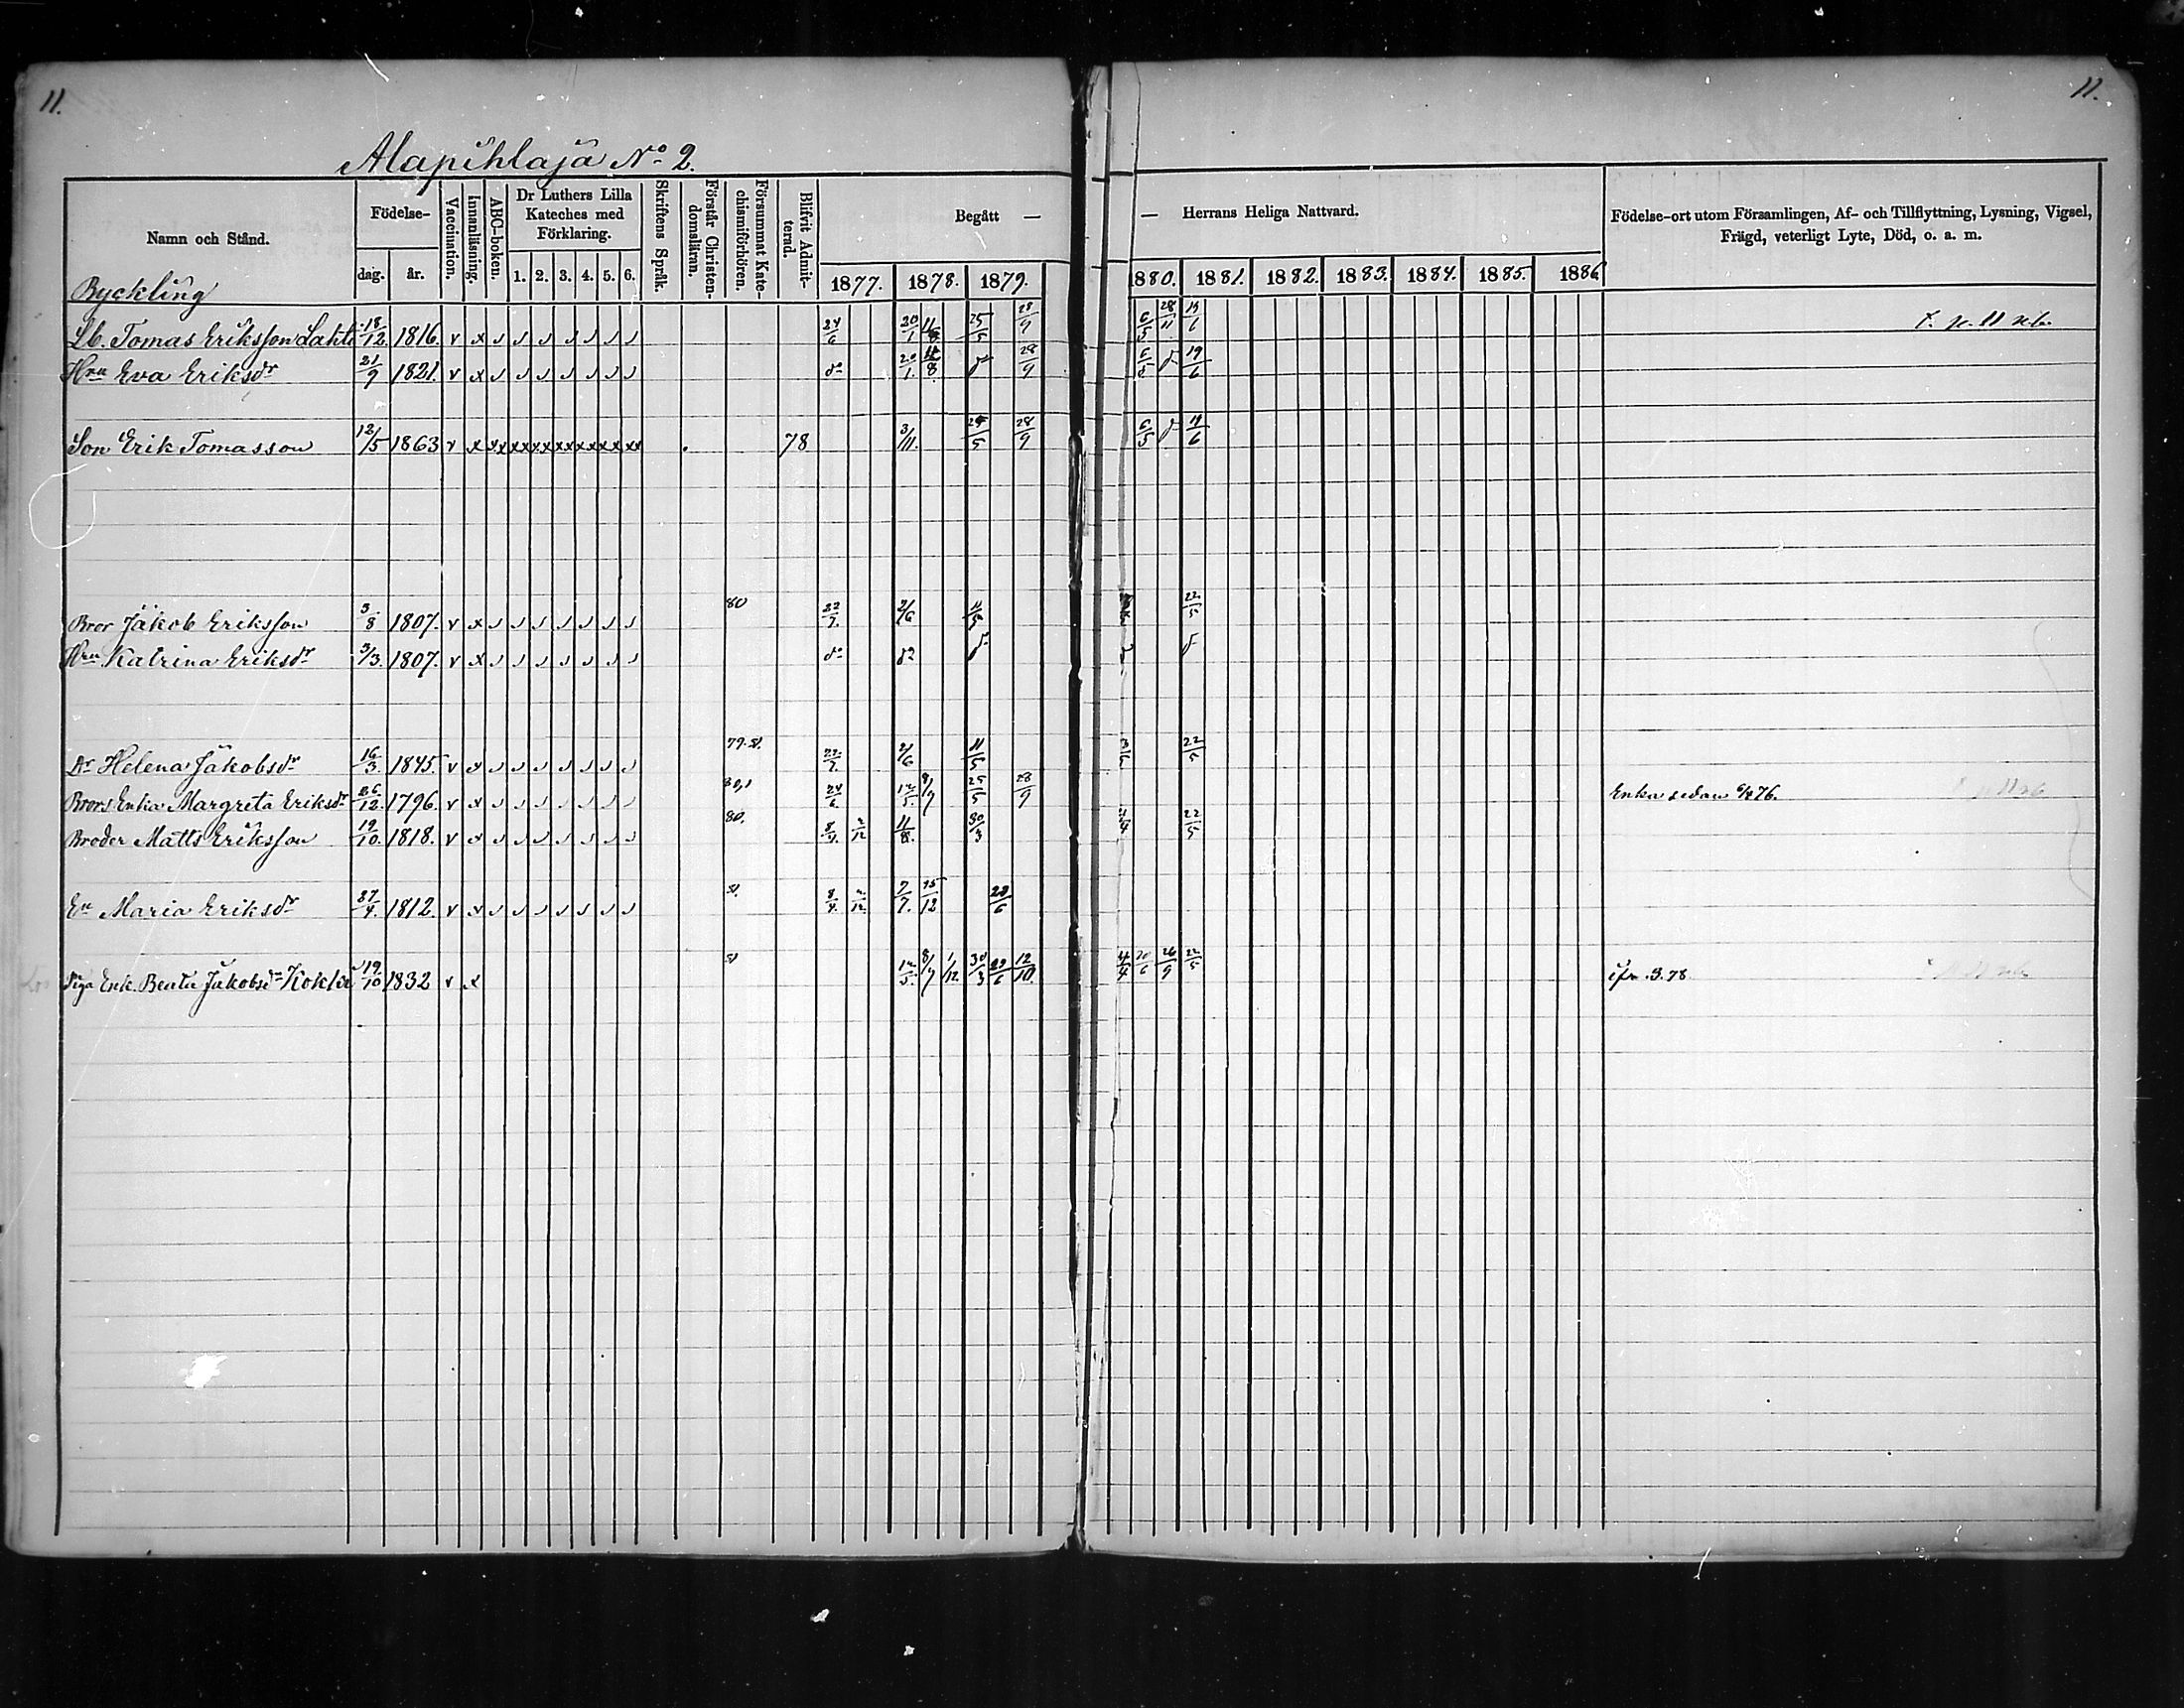 11. 11.
Alapihlaja No 2.
Namn och Stånd. Födelse- dag. år. Vaccination. Innanläsning. ABC-boken. Dr Luthers Lilla Kateches med Förklaring. 1. 2. 3. 4. 5. 6. Skriftens Språk. Förstår Christendomsläran. Försummat Katechismiförhören. Blifvit Admitterad. Begått — — Herrans Heliga Nattvard. Födelse-ort utom Församlingen, Af- och Tillflyttning, Lysning, Vigsel, Frägd, veterligt Lyte, Död, o. a. m.
1877. 1878. 1879. 1880. 1881. 1882. 1883. 1884. 1885. 1886
Byckling
Lb. Tomas Eriksson Lahti 18/12 1816. v x 24/6 20/1 11/8 25/5 28/9 6/5 28/11
Hru Eva Eriksdr 21/9 1821. v x do 20/1 8 do 28/9 6/5 do 19/6
Son Erik Tomasson 12/5 1863 v x 78 3/11. 25/5 28/9 6/5 do
Bror Jakob Eriksson 3/8 1807. v x 80 22/7. 2/6 11/5 22/5
Hru Katrina Eriksdr 3/3. 1807. v x do do do do
Dr Helena Jakobsdr 16/3. 1845. v x 79. 22/7. 2/6 11/5 3/5 22/5
Brors Enka Margreta Eriksdr 26/12. 1796. v x 24/6. 12/5. 8/9 25/5 28/9 Enka sedan 76.
Broder Matts Eriksson 19/10. 1818. v x 80. 8/4. 2/12 11/8. 30/3 4/4 22/5
En Maria Eriksdr 27/4. 1812. v x 8/4. 2/12 7/7. 15/12 29/6
Piga Enk. Beata Jakobsdr Kokki 19/10 1832 v x 12/5. 8/9 1/12. 30/3 29/6 12/10. 4/4 20/6 26/9 22/5 ifr. 3. 78